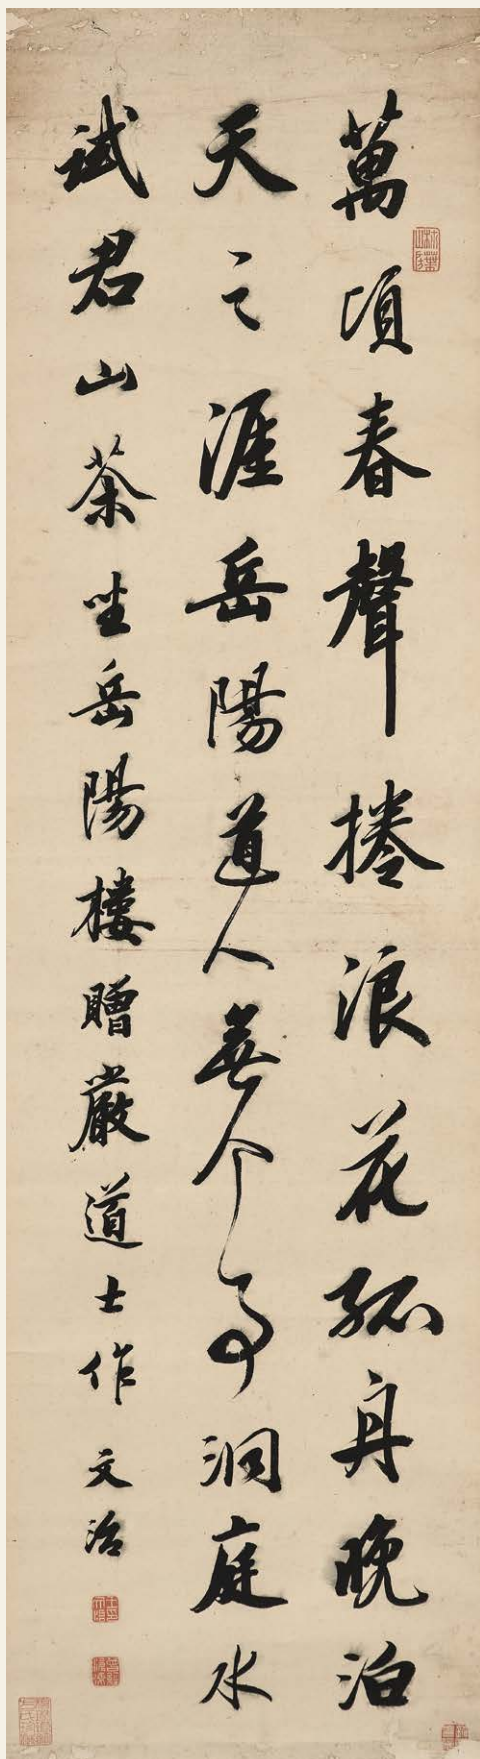 萬頃春聲捲浪花孤舟晚泊
天之涯岳陽道人無个事洞庭水
試君山茶坐岳陽樓贈嚴道士作 文治